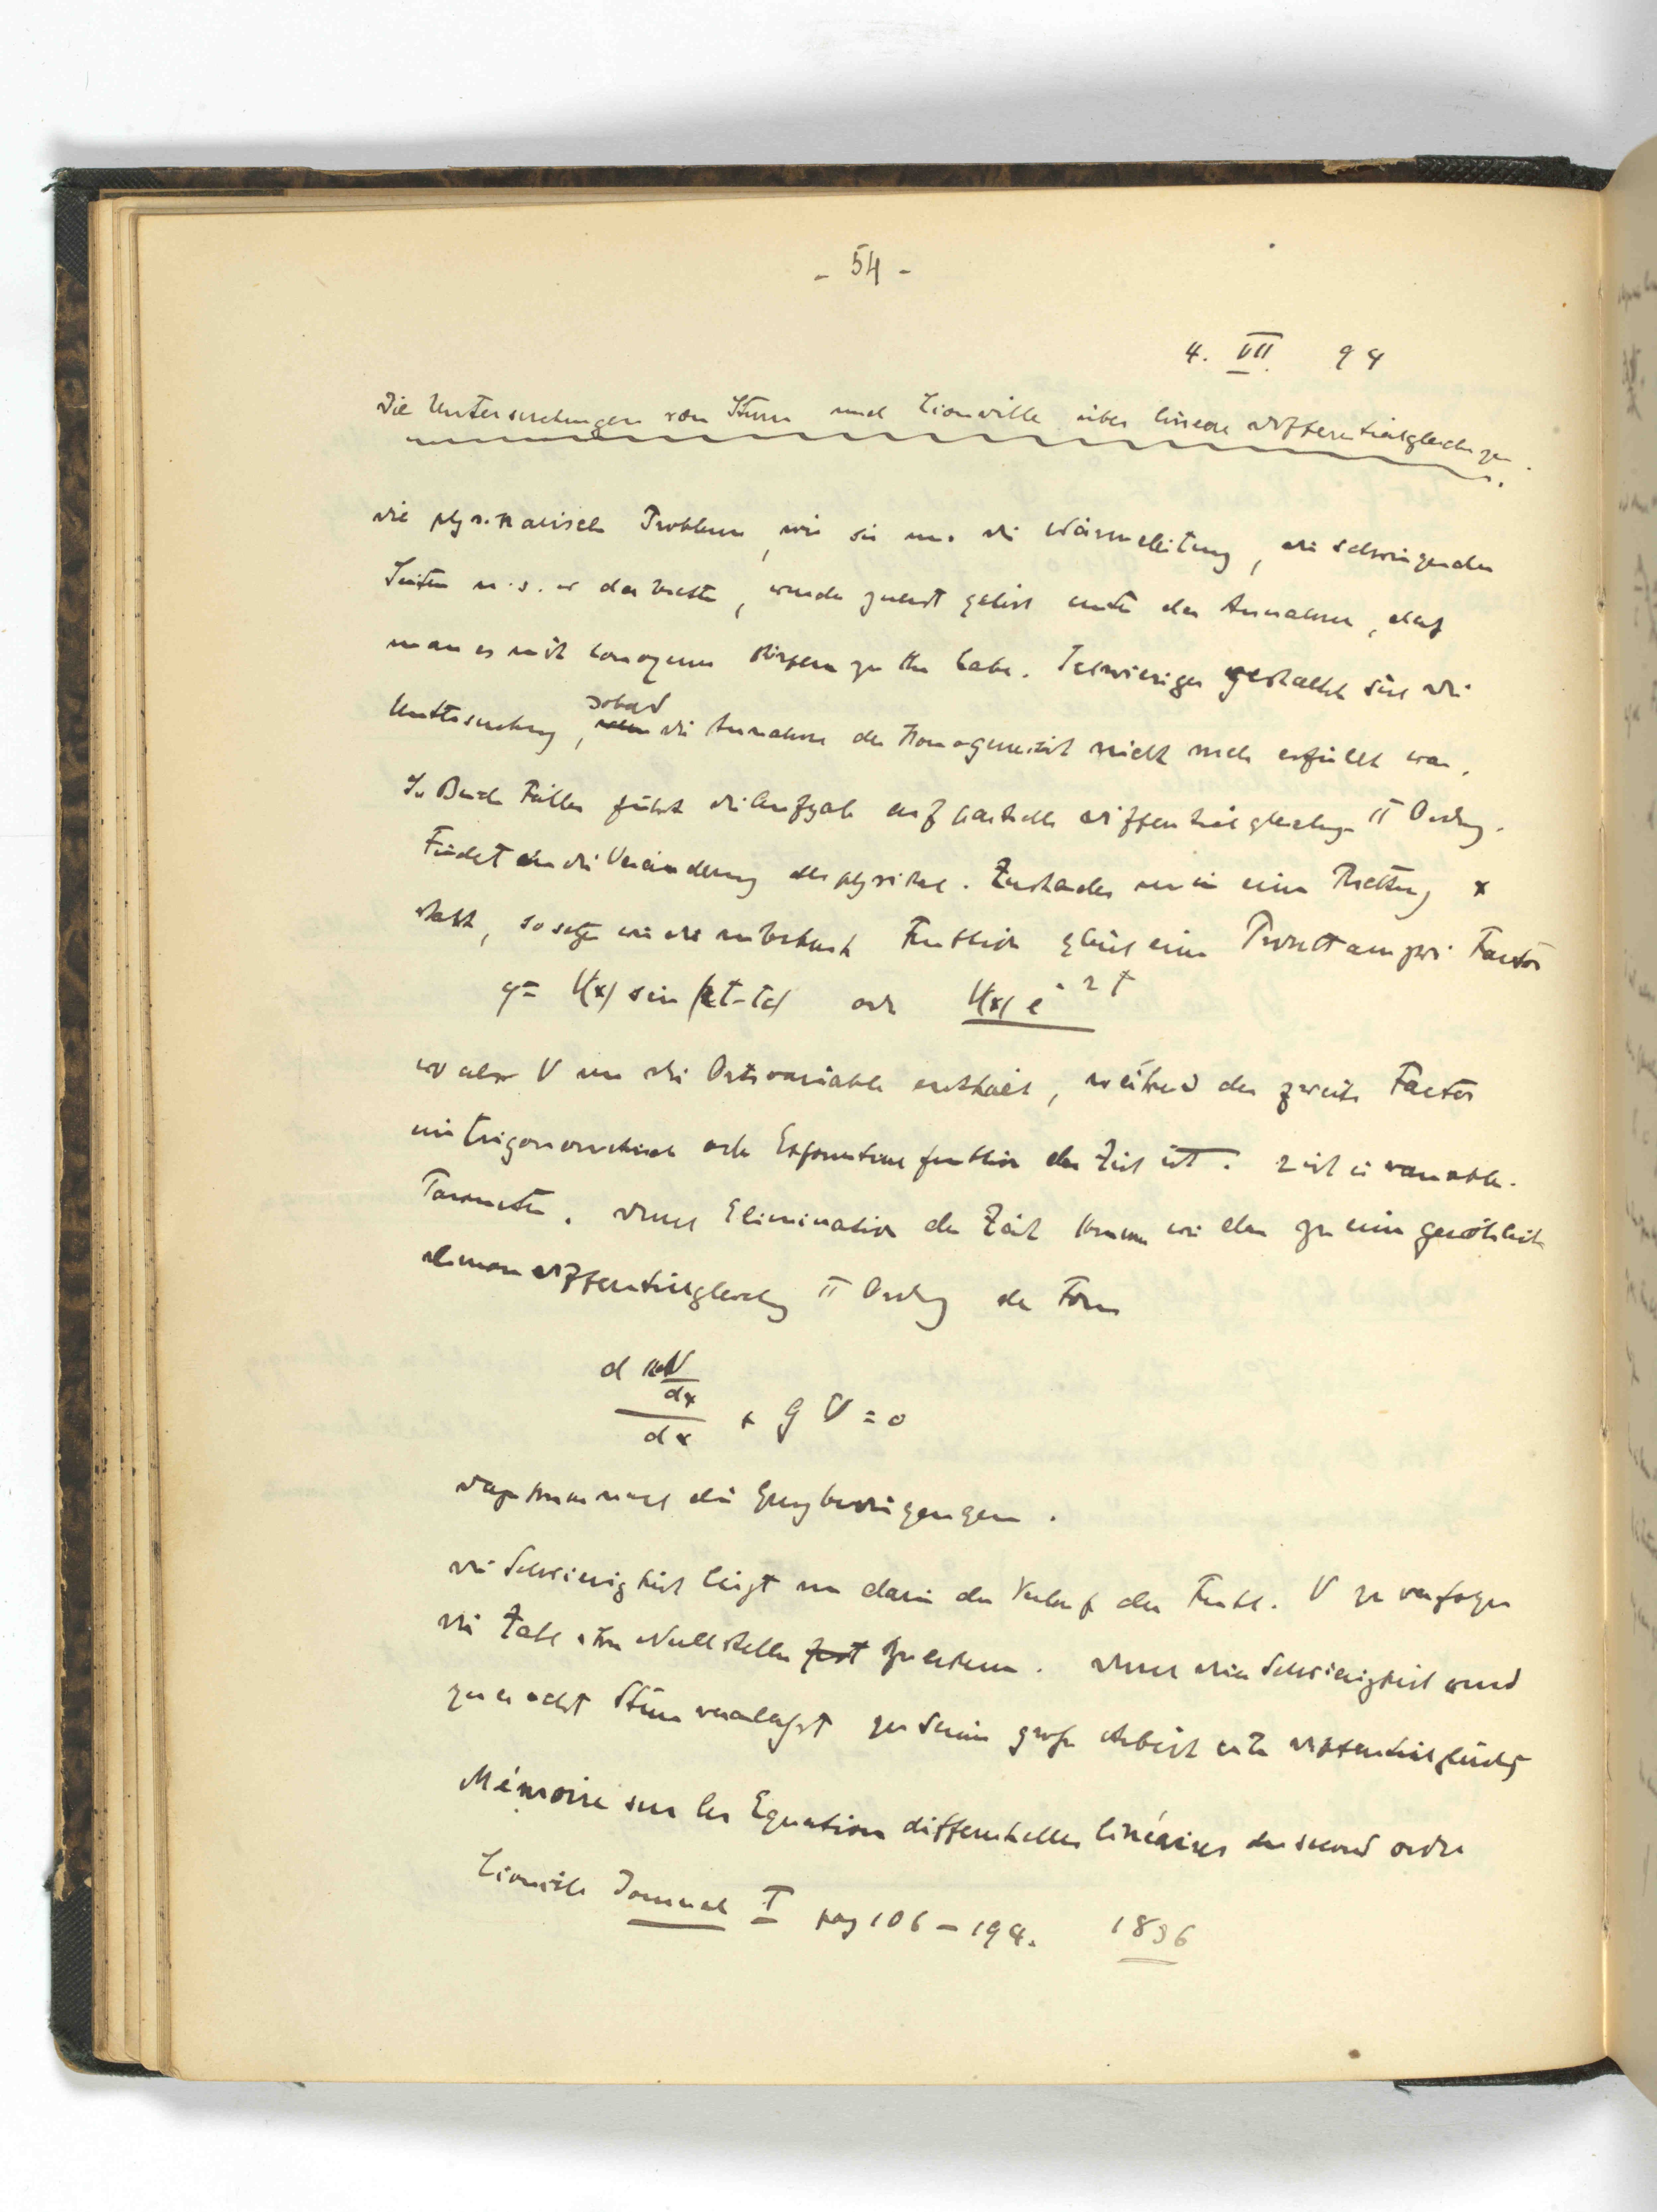 - 54 -
4. VII. 94
Die Untersuchungen von Sturm und Liouville über lineare Differentialgleichungen.
Die physikalischen Probleme, wie sie uns die Wärmeleitung, die schwingenden
Saiten u. s. w darbieten, wurden zuerst gelöst unter der Annahme, daß
man es mit homogenen Körpern zu thun habe. Schwieriger gestaltet sich die
Untersuchung, sobald die Annahme der Homogeneität nicht mehr erfüllt war.
In Beiden Fällen führt die Aufgabe auf partielle Differentialgleichungen II Ordnung.
Findet die Veränderung des physikal. Zustandes nur in einer Richtung x
statt, so setzen wir die unbekannte Funktion gleich einem Produkt aus zwei Factoren
y = V(x) sin (rt-c) oder V(x) e^{-rt}
wo also V nur die Ortsvariable enthält, während der zweite Factor
eine trigonometrische oder Exponentialfunktion der Zeit ist. r ist ein variabler
Parameter. Durch Elimination der Zeit kommen wir dann zu einer gewöhnlichen
Differentialgleichung II Ordnung der Form
d (K dV/dx)/dx + g V = 0
Dazu kommen noch die Grenzbedingungen.
Die Schwierigkeit liegt nun darin den Verlauf der Funkt. V zu verfolgen
die Zahl ihrer Nullstellen zu erkennen. Durch diese Schwierigkeit wurde
zunächst Sturm veranlaßt zu seiner großen Arbeit über Differentialgleichg
Mémoire sur les Equations différentielles linéaires du second ordre
Liouville Journal I pag 106 – 194. 1836